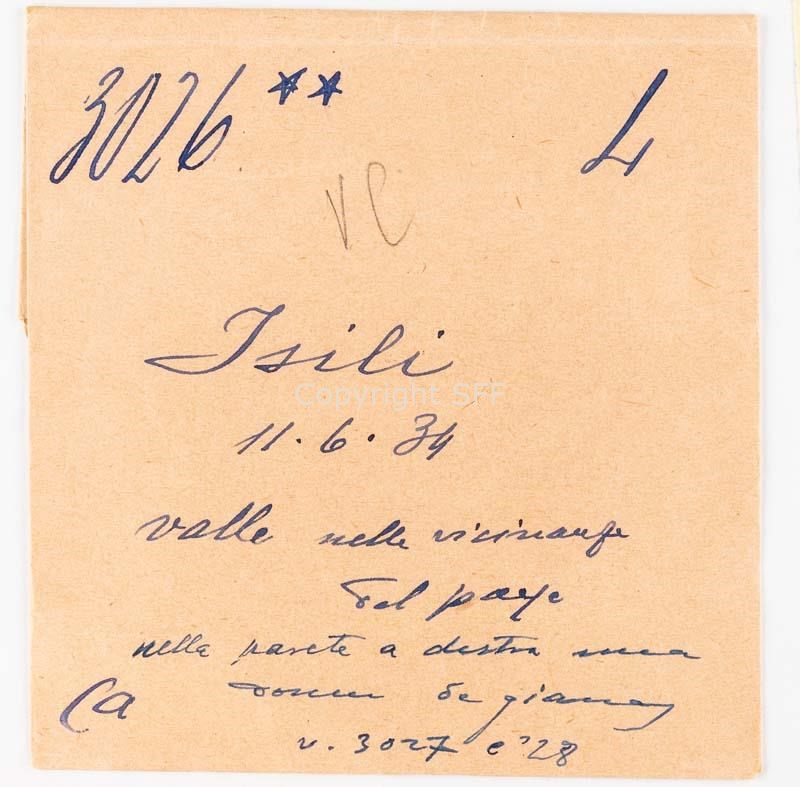 3026 ** L
VC
Isili
Copyright SFF
11.6.34
valle nelle vicinanze
del paese
nella parete a destra una
Ca domu de gianas
v. 3027 e '28